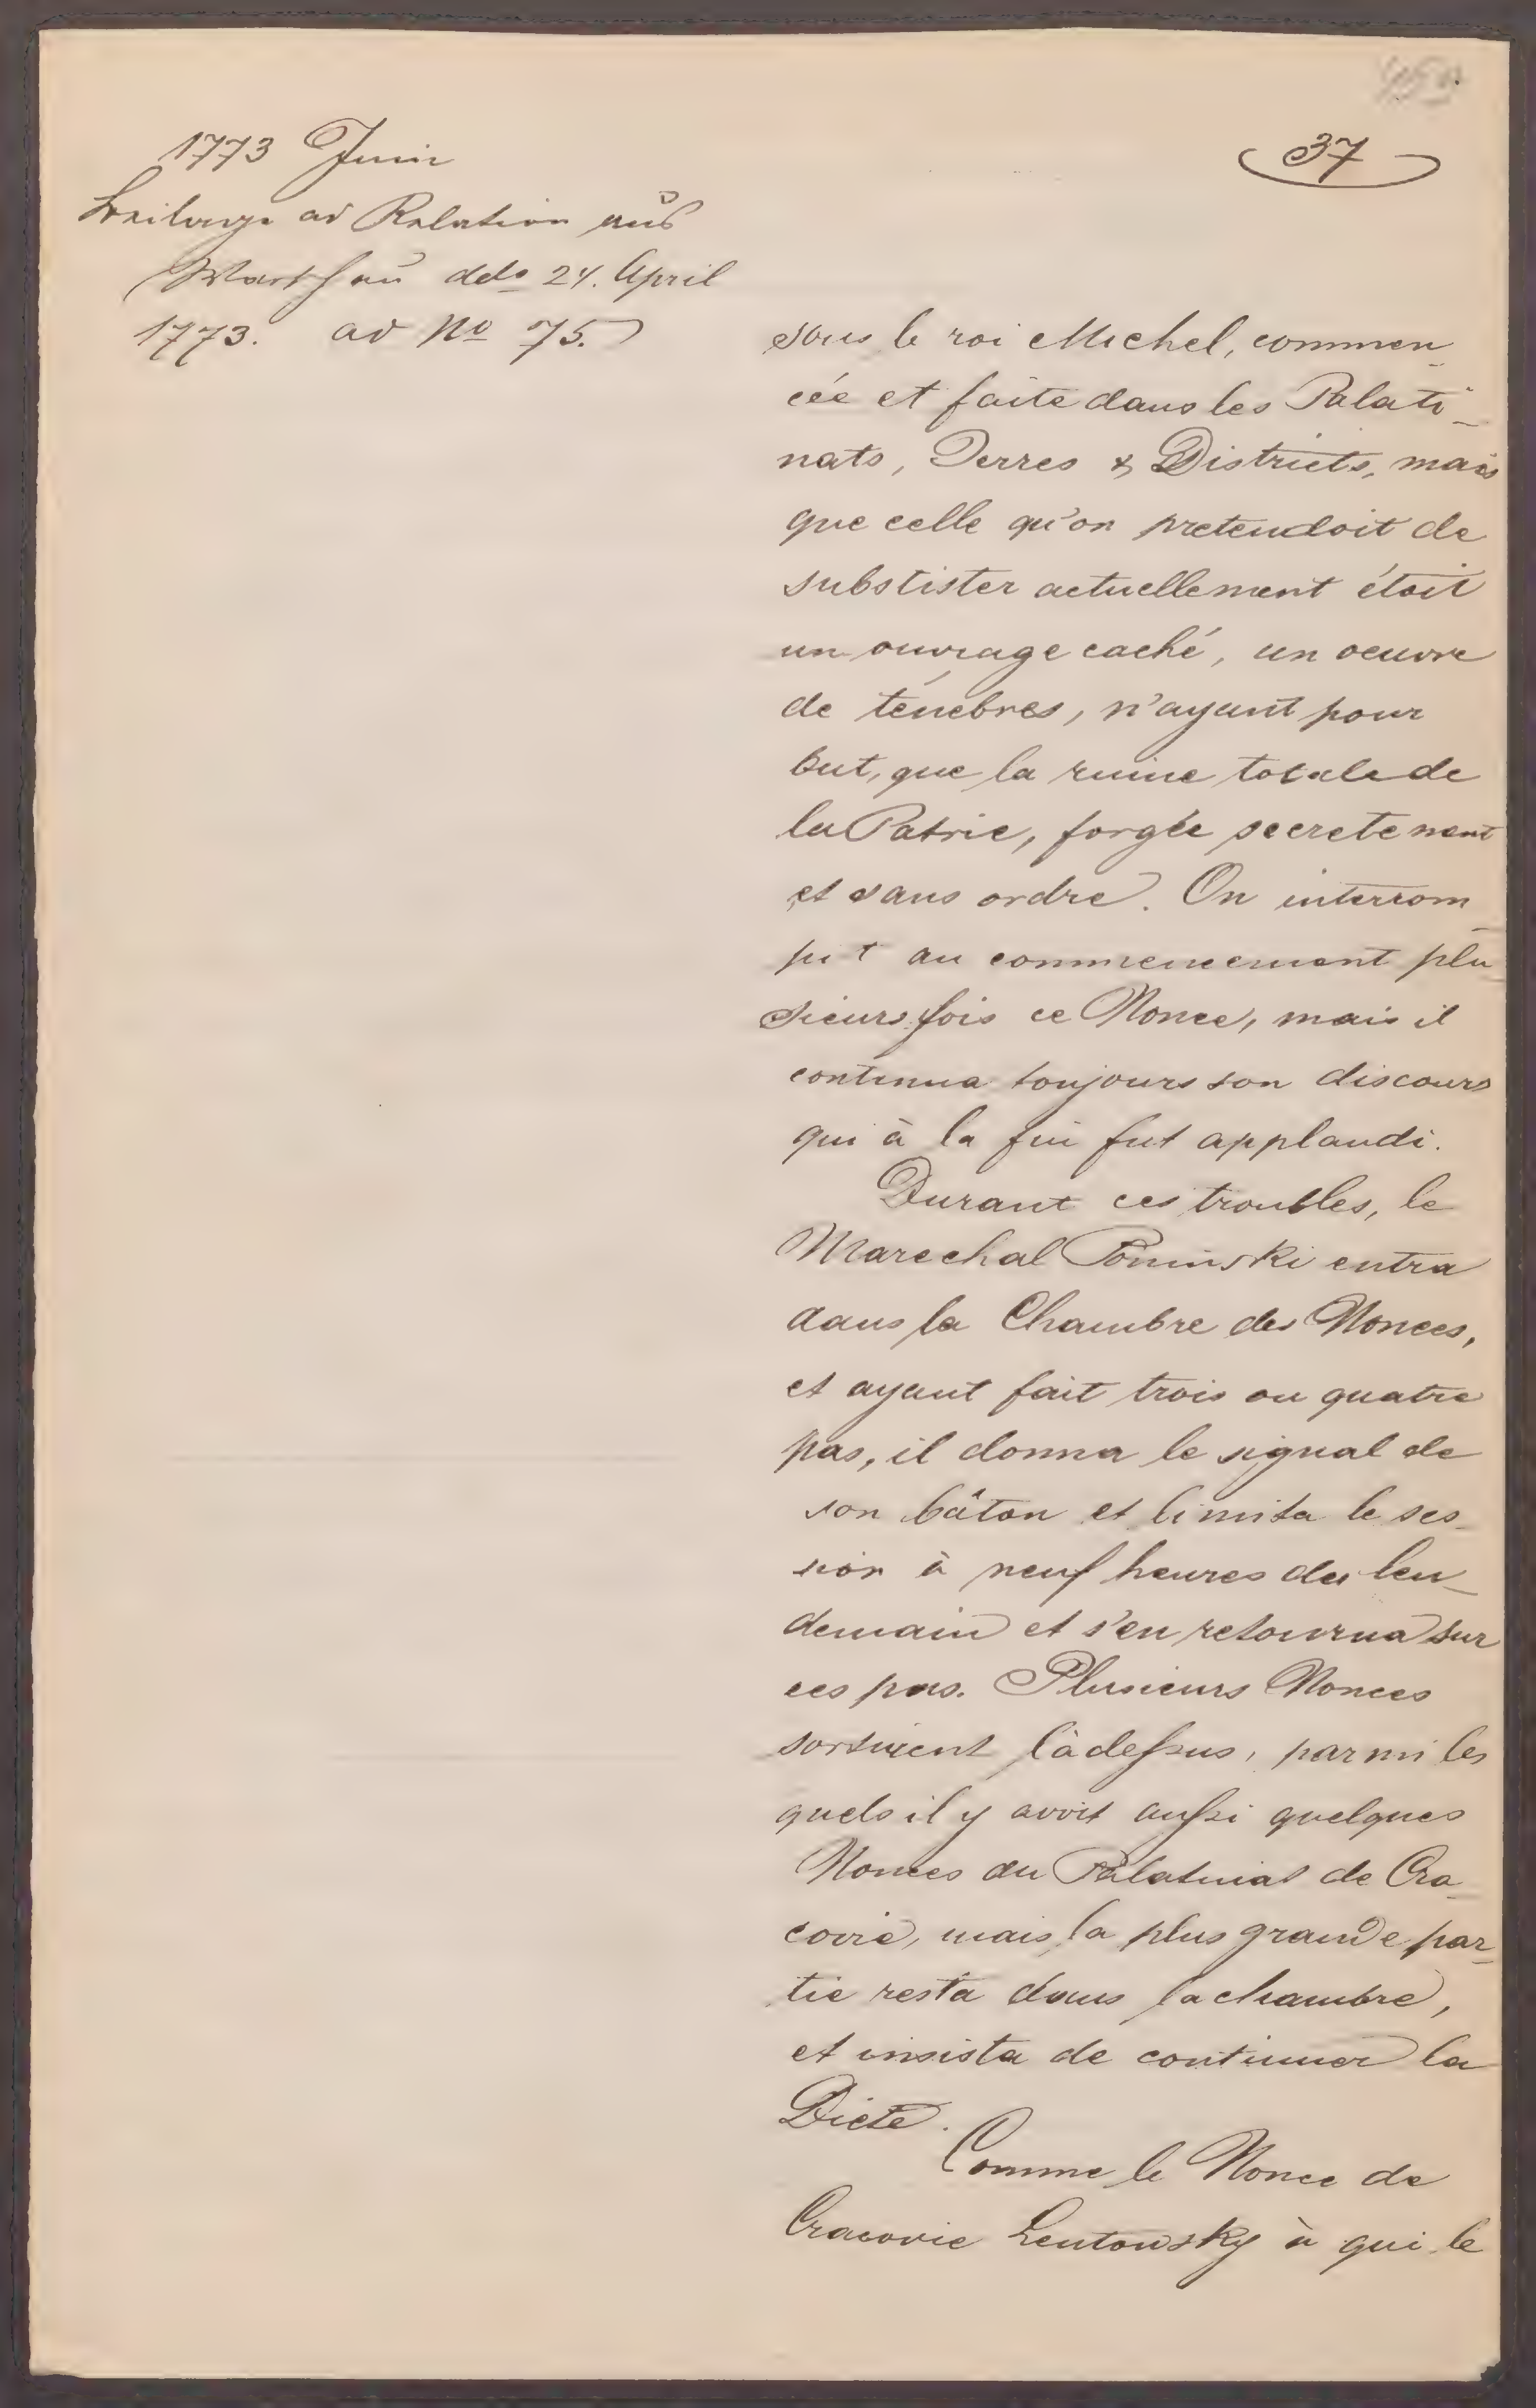 37
1773 Juni
Beilage ad Relation aus
Warschau ddo 24. April
1773. ad No 75.
sous le roi Michel, commen
cée et faite dans les Palati-
nats, Terres & Districts, mais
que celle qu'on pretendoit de
substister actuellement étoit
un ouvrage caché, un oeuvre
de ténèbres, n'ayant pour
but, que la ruine totale de
la Patrie, forgée secretement
et sans ordre. On interrom
pit au commencement plu
sieurs fois ce Nonce, mais il
continua toujours son discours
qui à la fin fut applaudi.
Durant ces troubles, le
Marechal Poninski entra
dans la Chambre des Nonces,
et ayant fait trois ou quatre
pas, il donna le signal de
son bâton et limita le ses-
sion à neuf heures du len-
demain et s'en retourna sur
ces pas. Plusieurs Nonces
sortirent làdessus, parmi les
quels il y avoit aussi quelques
Nonces du Palatinat de Cra-
covie, mais la plus grande par-
tie resta dans la chambre,
et insista de continuer la
Diete.
Comme le Nonce de
Cracovie Lentowsky à qui le